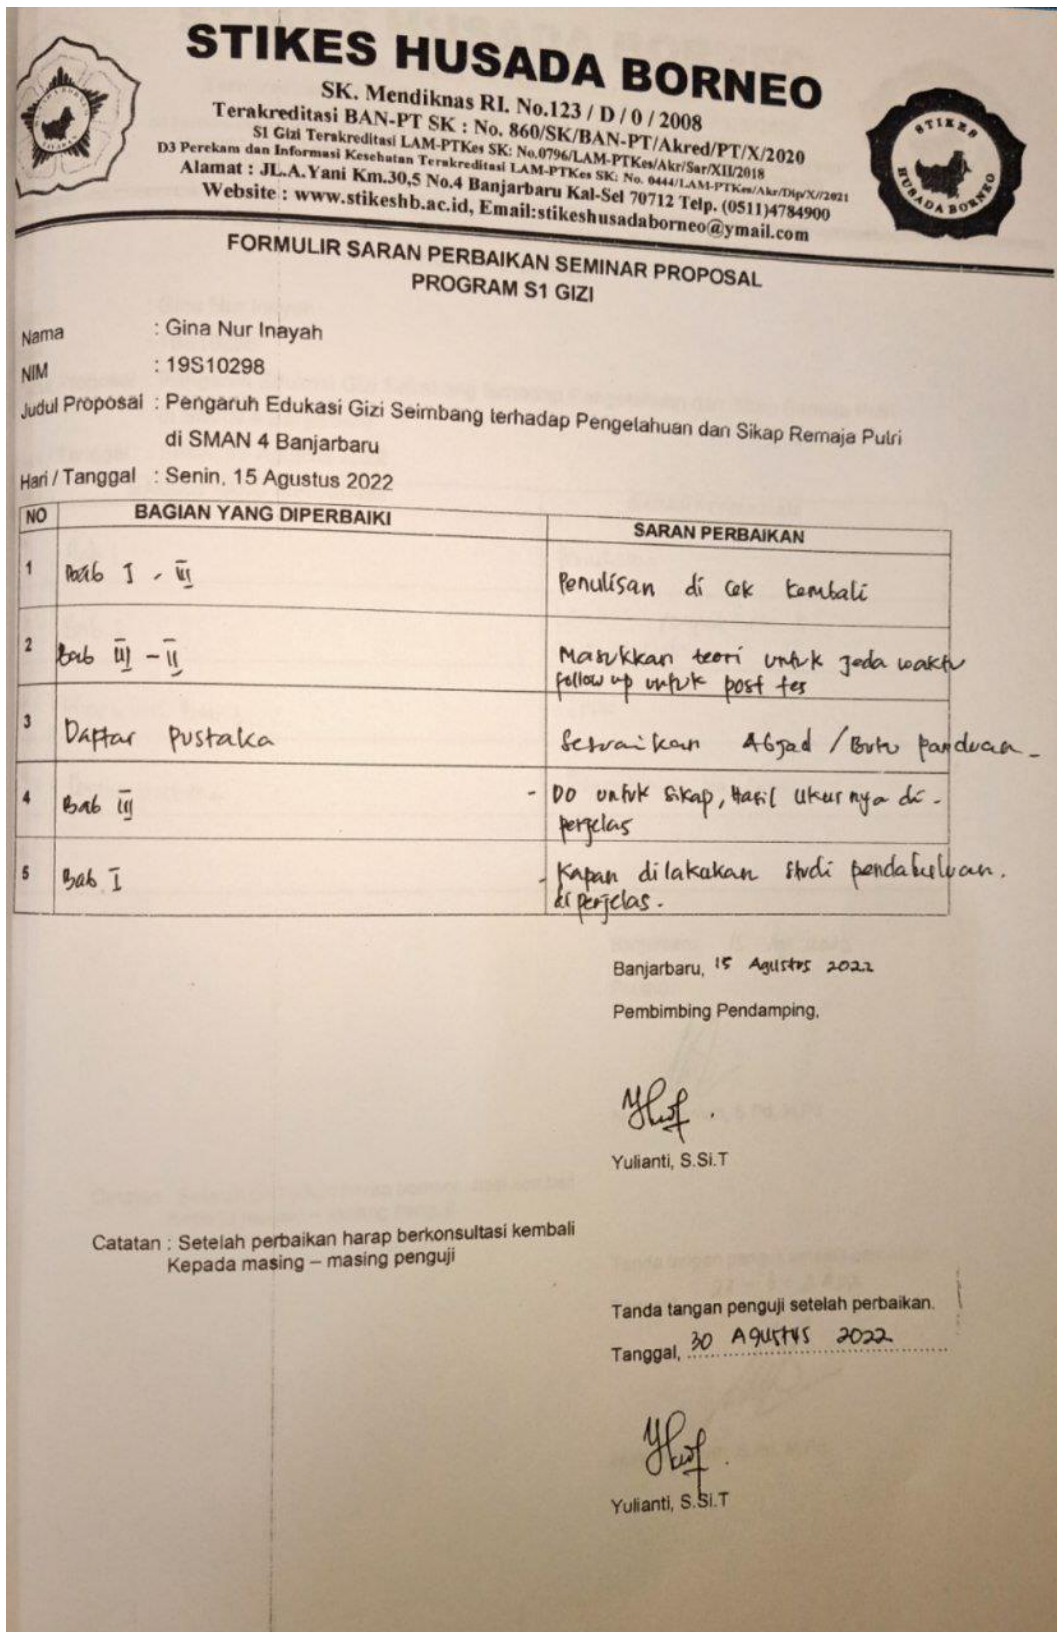 STIKES HUSADA BORNEO
SK. Mendiknas RI. No.123 / D / 0 / 2008
Terakreditasi BAN-PT SK : No. 860/SK/BAN-PT/Akred/PT/X/2020
S1 Gizi Terakreditasi LAM-PTKes SK: No.0796/LAM-PTKes/Akr/Sar/XII/2018
D3 Perekam dan Informasi Kesehatan Terakreditasi LAM-PTKes SK: No. 0444/LAM-PTKes/Akr/Dip/X//2021
Alamat : JL.A.Yani Km.30,5 No.4 Banjarbaru Kal-Sel 70712 Telp. (0511)4784900
Website : www.stikeshb.ac.id, Email:stikeshusadaborneo@ymail.com
STIKES
HUSADA BORNEO
FORMULIR SARAN PERBAIKAN SEMINAR PROPOSAL
PROGRAM S1 GIZI
Nama : Gina Nur Inayah
NIM : 19S10298
Judul Proposal : Pengaruh Edukasi Gizi Seimbang terhadap Pengetahuan dan Sikap Remaja Putri
di SMAN 4 Banjarbaru
Hari / Tanggal : Senin, 15 Agustus 2022
NO BAGIAN YANG DIPERBAIKI SARAN PERBAIKAN
1 Bab I - III Penulisan di cek kembali
2 Bab III - II Masukkan teori untuk jeda waktu
follow up untuk post tes
3 Daftar Pustaka Sesuaikan Abjad / Buku panduan -
4 Bab III - DO untuk sikap, Hasil ukurnya di -
perjelas
5 Bab I - Kapan dilakukan studi pendahuluan.
di perjelas.
Banjarbaru, 15 Agustus 2022
Pembimbing Pendamping,
Yulianti, S.Si.T
Catatan : Setelah perbaikan harap berkonsultasi kembali
Kepada masing – masing penguji
Tanda tangan penguji setelah perbaikan.
Tanggal, 30 Agustus 2022
Yulianti, S.Si.T